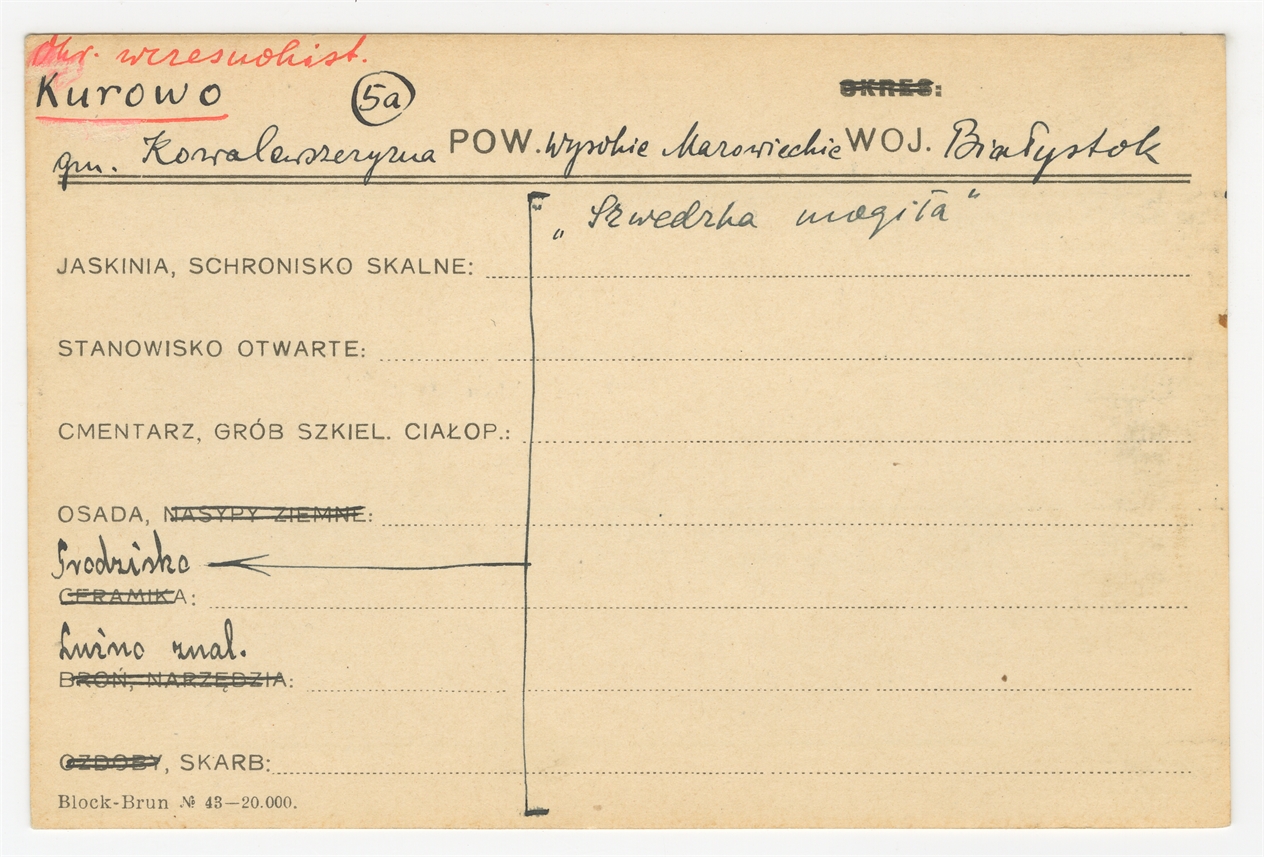 Okr. wczesnohist.
Kurowo 5a OKRES:
gm. Kowalewszczyzna POW. Wysokie Mazowieckie WOJ. Białystok
„Szwedzka mogiła"
JASKINIA, SCHRONISKO SKALNE:
STANOWISKO OTWARTE:
CMENTARZ, GRÓB SZKIEL. CIAŁOP.:
OSADA, NASYPY ZIEMNE:
Grodzisko
CERAMIKA:
Luźno znal.
BROŃ, NARZĘDZIA:
OZDOBY, SKARB:
Block-Brun № 43—20.000.